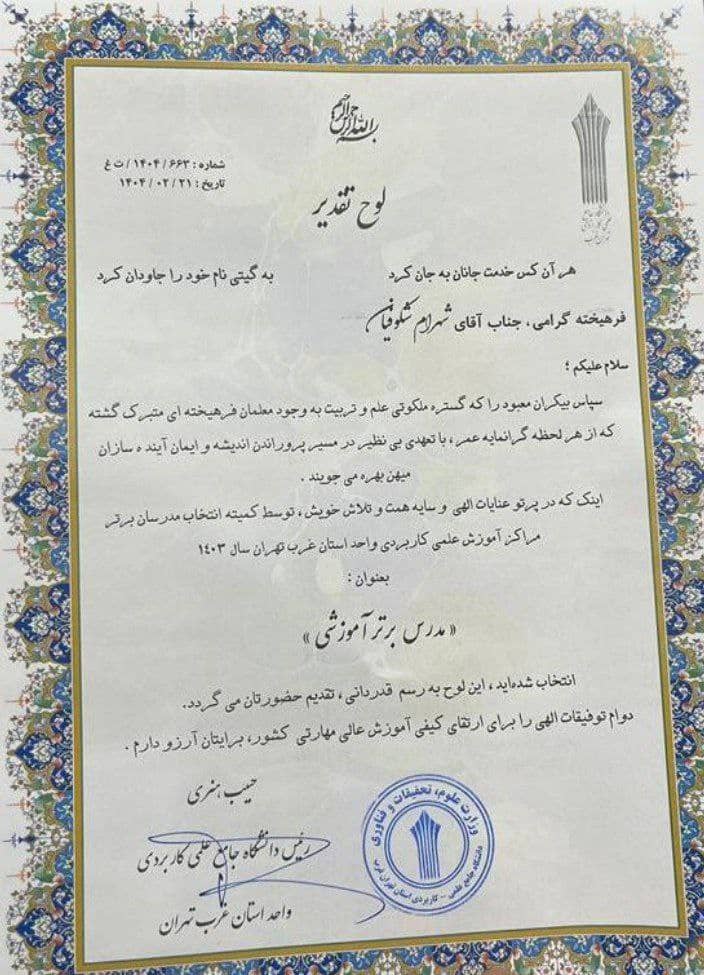 بسم الله الرحمن الرحیم
شماره : ۶۶۳ / ۱۴۰۴ / ت غ
تاریخ : ۲۱ / ۰۲ / ۱۴۰۴
لوح تقدیر
هر آن کس خدمت جانان به جان کرد به گیتی نام خود را جاودان کرد
فرهیخته گرامی، جناب آقای شهرام شکوفیان
سلام علیکم ؛
سپاس بیکران معبود را که گستره ملکوتی علم و تربیت به وجود معلمان فرهیخته ای متبرک گشته
که از هر لحظه گرانمایه عمر، با تعهدی بی نظیر در مسیر پروراندن اندیشه و ایمان آینده سازان
میهن بهره می جویند .
اینک که در پرتو عنایات الهی و سایه همت و تلاش خویش، توسط کمیته انتخاب مدرسان برتر
مراکز آموزش علمی کاربردی واحد استان غرب تهران سال ۱۴۰۳
بعنوان :
« مدرس برتر آموزشی »
انتخاب شده‌اید، این لوح به رسم قدردانی، تقدیم حضورتان می گردد.
دوام توفیقات الهی را برای ارتقای کیفی آموزش عالی مهارتی کشور، برایتان آرزو دارم .
حبیب هنری
رئیس دانشگاه جامع علمی کاربردی
واحد استان غرب تهران
وزارت علوم، تحقیقات و فناوری
دانشگاه جامع علمی - کاربردی استان تهران غرب